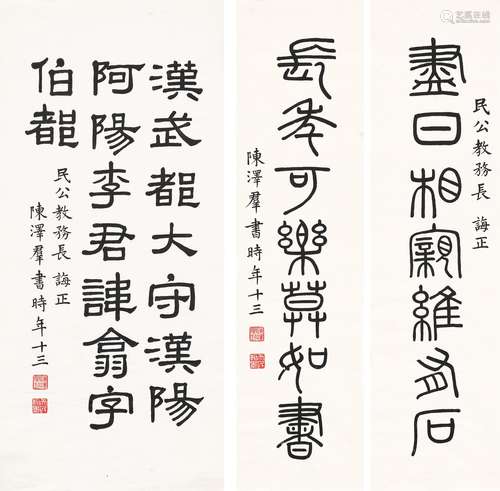 盡日相親維有石
民公教務長 誨正
長年可樂莫如書
陳澤羣書時年十三
漢武都大守漢陽
阿陽李君諱翕字
伯都
民公教務長 誨正
陳澤羣書時年十三
艺典在线
yidianchina.com